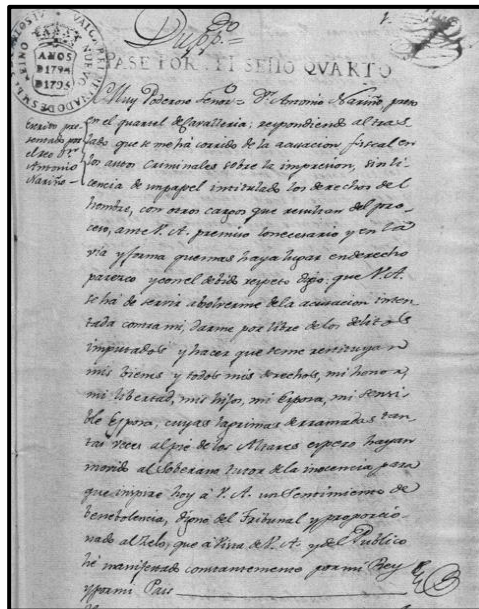 Dupp.do
VALGA PARA EL
AÑOS
D 1794
D 1795
PASE POR EL SELLO QVARTO
Muy Poderoso Señor = Dn. Antonio Nariño, preso
en el quartel de Cavalleria; respondiendo al tras
lado que se me há corrido de la acusacion fiscal en
los autos Criminales sobre la impresion, sin li
cencia de un papel intitulado los derechos del
hombre, con otros cargos que resultan del pro-
ceso, ante V. A. premiso lo necesario y en la
via y forma que mas haya lugar en derecho
parezco, y con el debido respeto digo: que V. A.
se há de servir absolverme de la acusacion inten
tada contra mi, darme por libre de los delitos
imputados y hacer que se me restituyan
mis bienes y todos mis derechos, mi honor,
mi libertad, mis hijos, mi Esposa, mi sensi
ble Esposa, cuyas lagrimas derramadas tan
tas veces al pie de los Altares espero hayan
movido al Soberano tutor de la inocencia, para
que inspire hoy á V. A. un Sentimiento de
benebolencia, digno del Tribunal y proporcio
nado al zelo, que á vista de V. A. y del Publico
hé manifestado constantemente por mi Rey
y por mi Pais
Escrito pre
sentado por
el reo Dn.
Antonio
Nariño